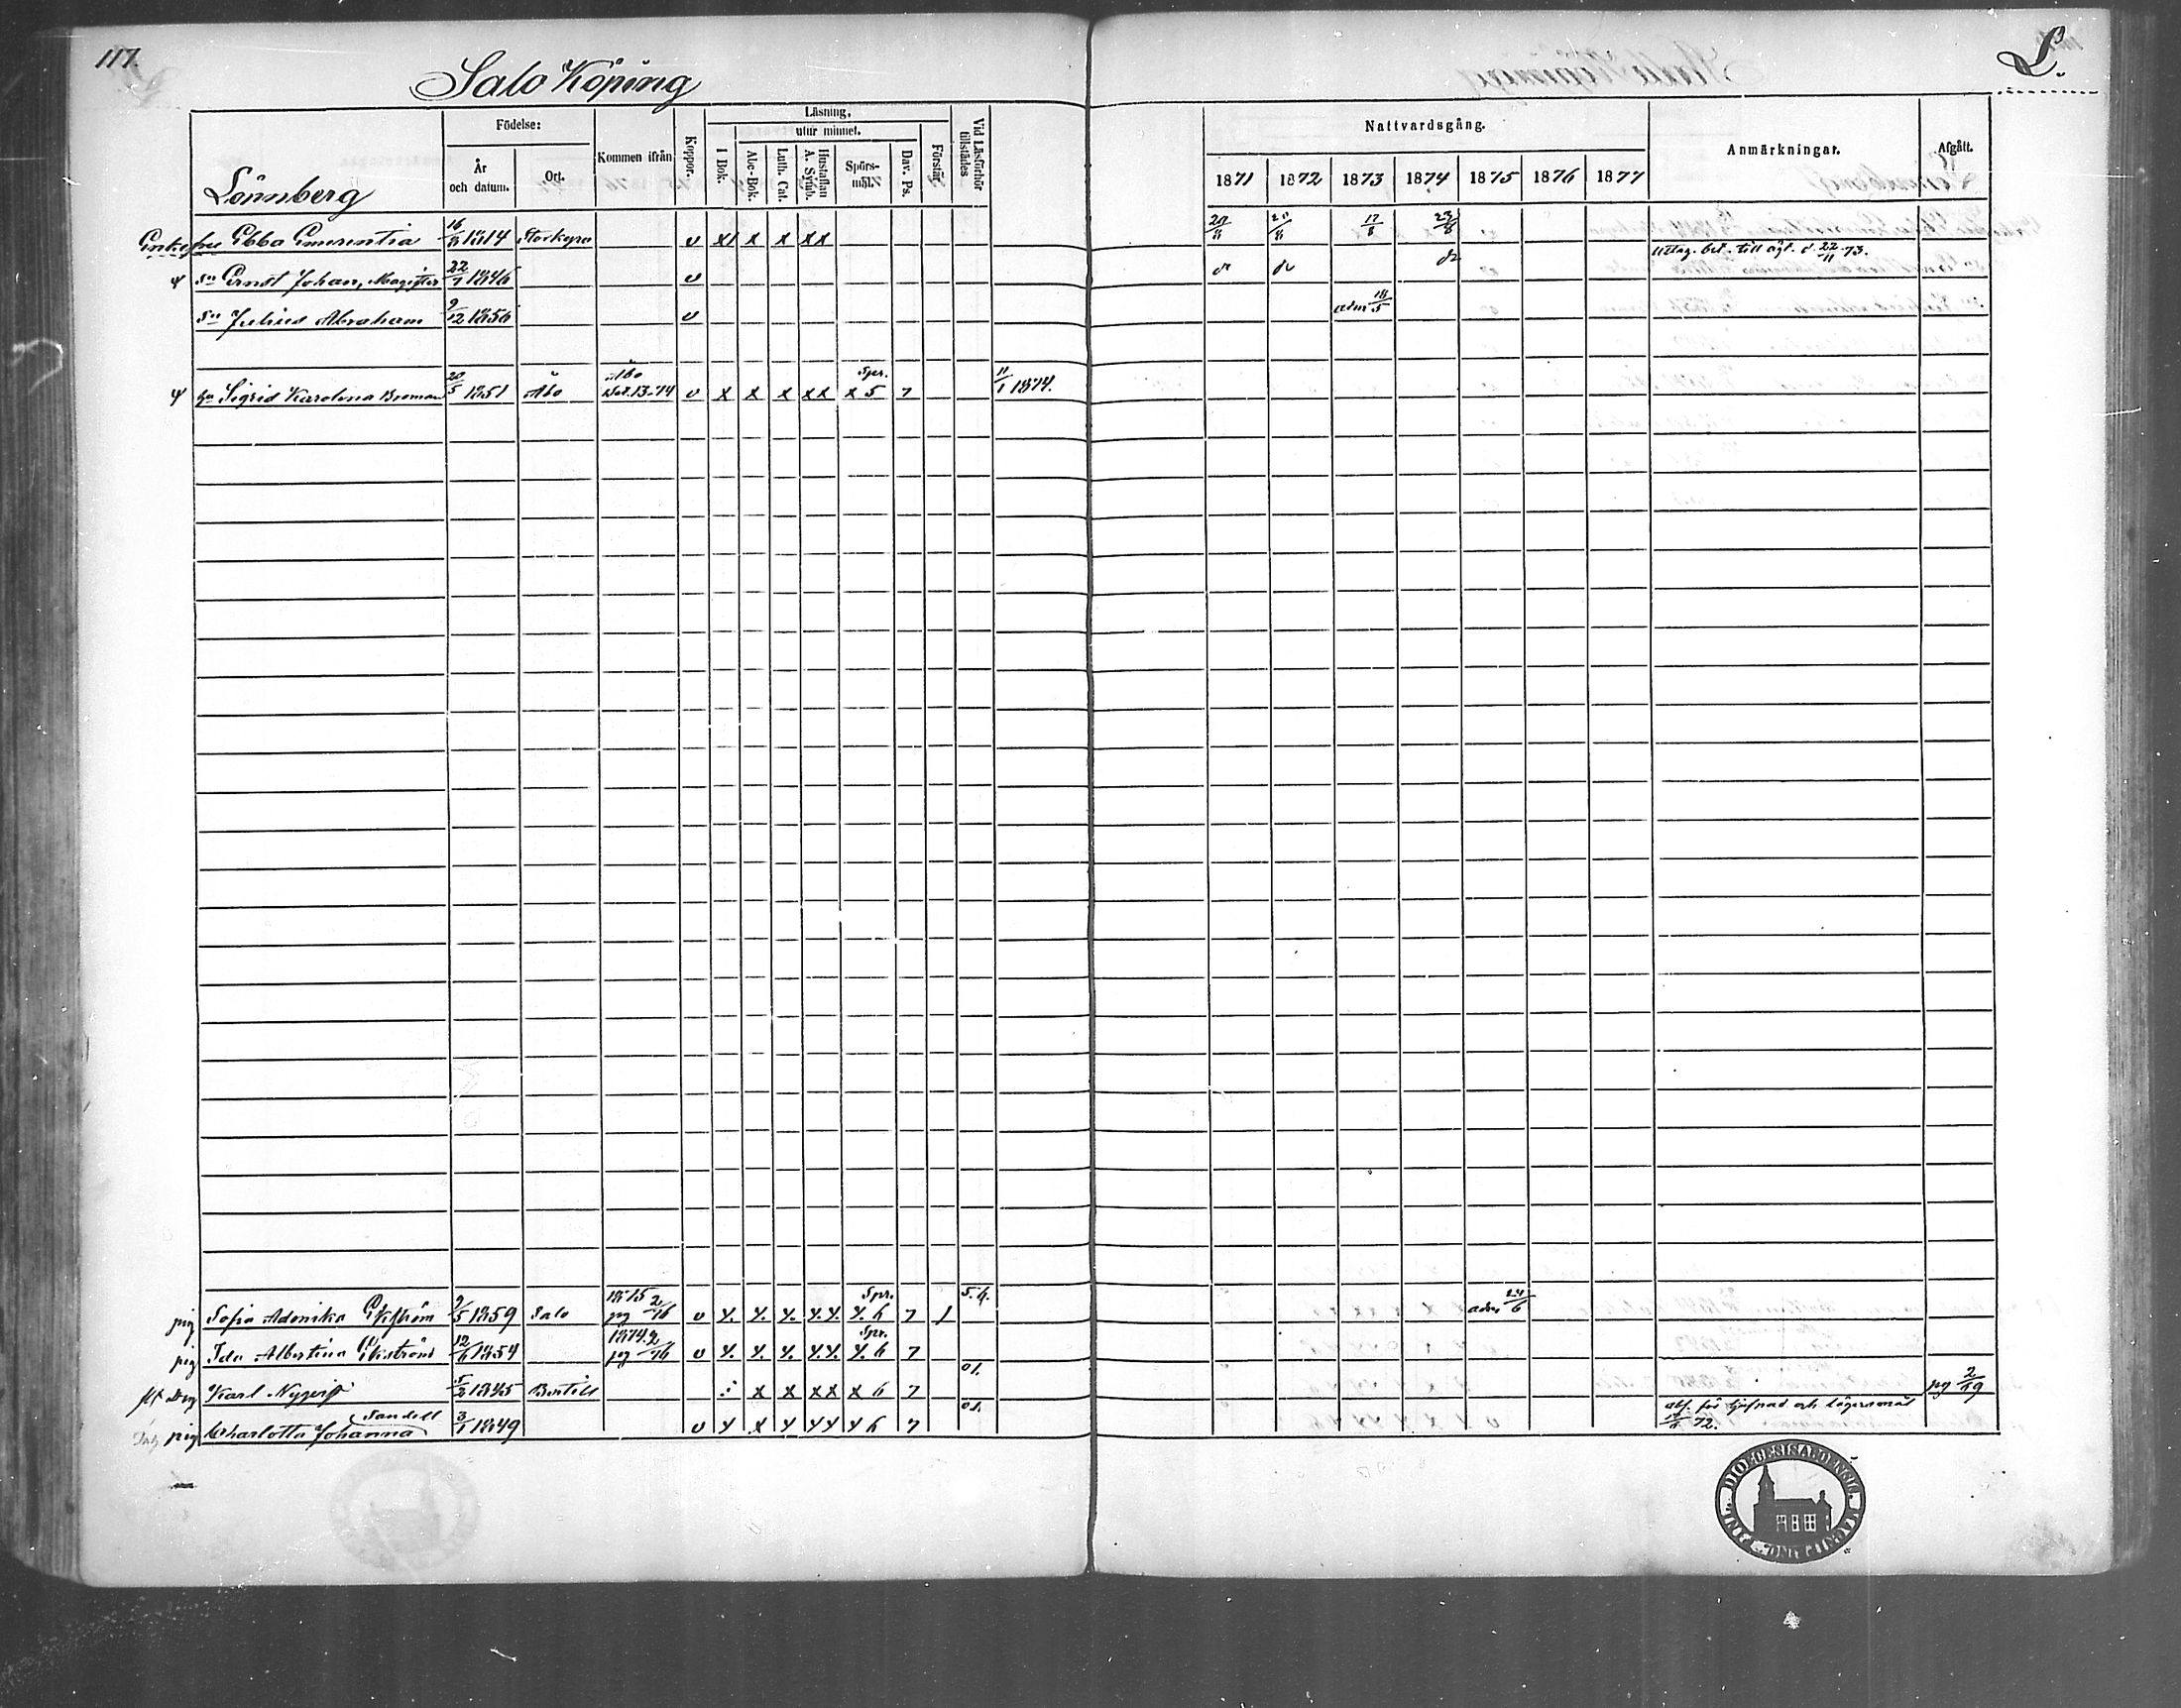 117.
Salo Köping
L.
Lönnberg
Födelse:
År och datum.
Ort.
Kommen ifrån
Koppor.
Läsning,
I Bok.
utur minnet.
Abc-Bok.
Luth. Cat.
Hustaflan A. Symb.
Spörs-mål.
Dav. Ps.
Förstår
Vid Läsförhör tillstädes
Nattvardsgång.
1871 1872 1873 1874 1875 1876 1877
Anmärkningar.
Afgått.
Enkefru Ebba Emerentia 16/8 1814 Storkyro v x x x x x 20/8 20/8 17/8 23/8
sn Ernst Johan, Magister 22/7 1846 v
uttag. bet. till ägt. d. 22/11 73.
sn Julius Abraham 9/12 1856 v adm 18/5
hu Sigrid Karolina Broman 20/5 1851 Åbo Åbo v x x x x x Spr. x 5 7 11/1 1874.
pig Sofia Adonika Ekström 9/5 1859 Salo 1875 pg 2/76 v x. x. x. x.x. Spr. x. 6 7 1 5.4. adm 24/6
pig Ida Albertina Ekström 12/6 1854 1874.2 pg /76 v x. x. x. x.x. Spr. x. 6 7
Karl Nyqvist 5/2 1845 Bertils x x x x x 6 7 01. pg 2/19
pig Charlotta Johanna Sandell 3/1 1849 v x x x x x x 6 7 01. abs. för tjufnad och lägersmål 72.
DIOECESIS ABOENSIS.